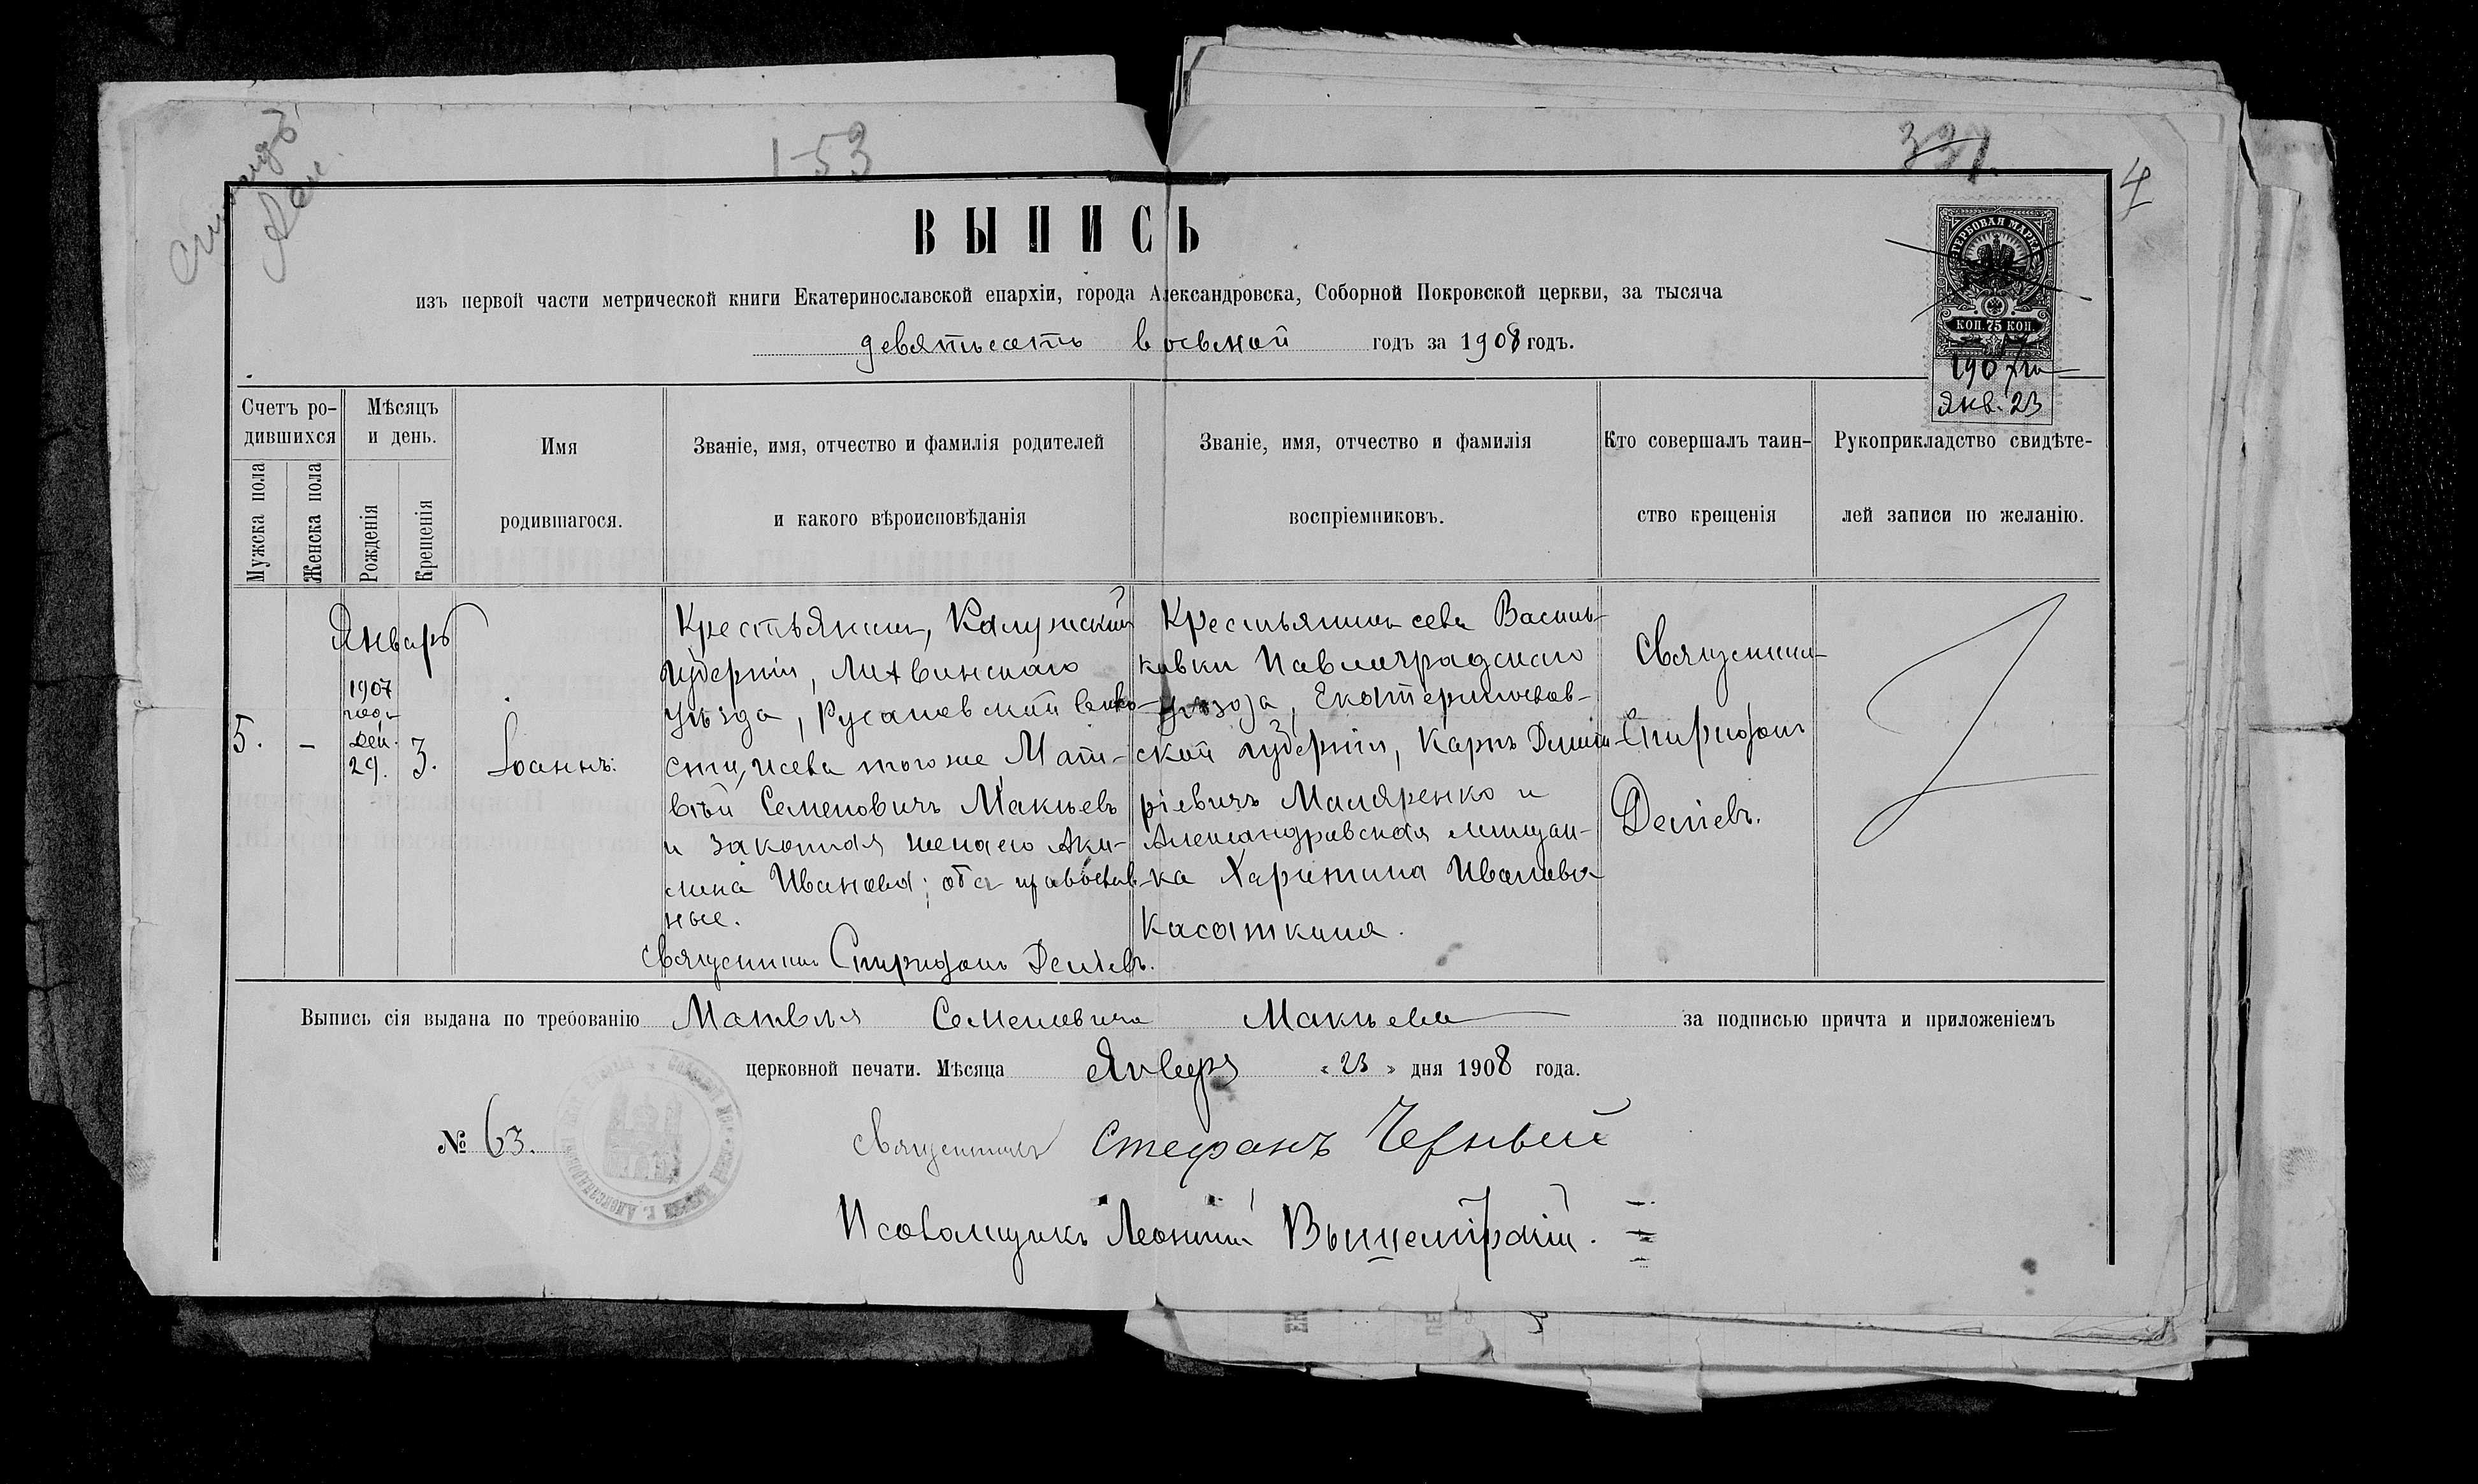 153
331.
4
ВЫПИСЬ
ГЕРБОВАЯ МАРКА
КОП. 75 КОП.
Янв. 23
изъ первой части метрической книги Екатеринославской епархіи, города Александровска, Соборной Покровской церкви, за тысяча
девятьсотъ восьмой годъ за 1908 годъ.
Счетъ ро-
дившихся
Мужска пола
Женска пола
Мѣсяцъ
и день.
Рожденія
Крещенія
Имя
родившагося.
Званіе, имя, отчество и фамилія родителей
и какого вѣроисповѣданія
Званіе, имя, отчество и фамилія
воспріемниковъ.
Кто совершалъ таин-
ство крещенія
Рукоприкладство свидѣте-
лей записи по желанію.
Январь
5.
-
1907
года
Дек.
29.
3.
Іоаннъ.
Крестьянин, Калужской
губерніи, Лихвинскаго
уѣзда, Русановской воло-
сти, и села того же Мат-
вѣй Семеновичъ Макѣевъ
и законная жена его Аки-
лина Иванова; оба православ-
ные.
Священник Спиридон Деліевъ.
Крестьянин села Василь-
ковки Павлоградскаго
уѣзда, Екатеринослав-
ской губерніи, Карпъ Дими-
ріевичъ Маляренко и
Александровская мѣщан-
ка Харитина Иванова
Касаткина.
Священник
Спиридонъ
Деліевъ.
Выпись сія выдана по требованію Матвѣя Семеновича Макѣева за подписью причта и приложеніемъ
церковной печати. Мѣсяца Января « 23 » дня 1908 года.
№ 63.
Священникъ Стефанъ Черный
Псаломщикъ Леонтій